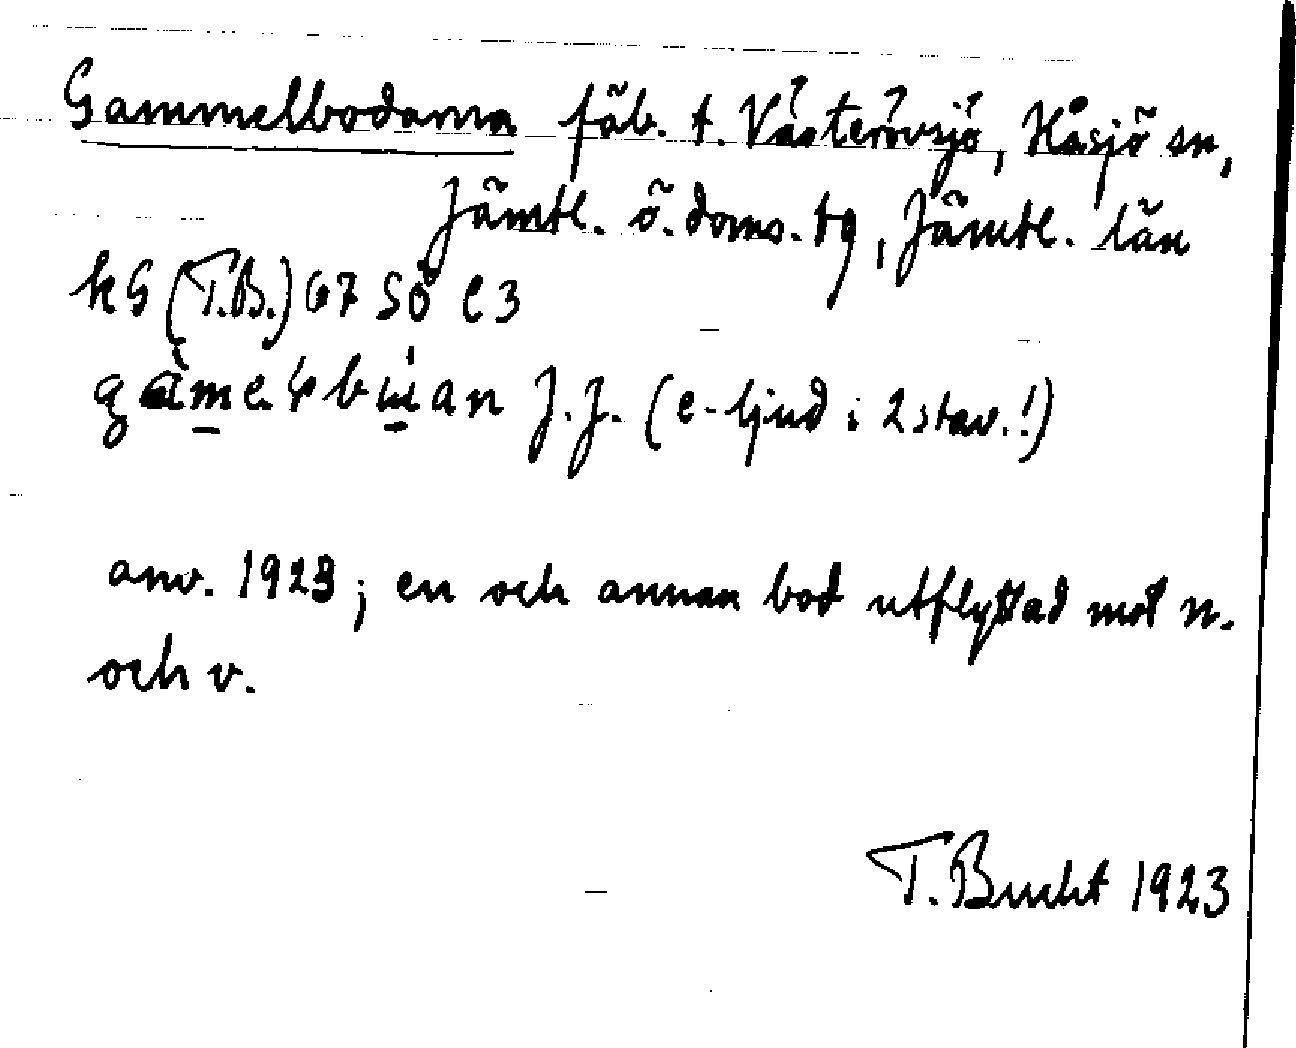 Gammelbodarna fäb. t. Västerövsjö, Håsjö sn,
Jämtl. ö. doms. tg, Jämtl. län
kG (T.B.) 67 SÖ e 3
J.J. (e-ljud i 2 stav.!)
anv. 1923; en och annan bod utflyttad mot n.
och v.
T. Bucht 1923